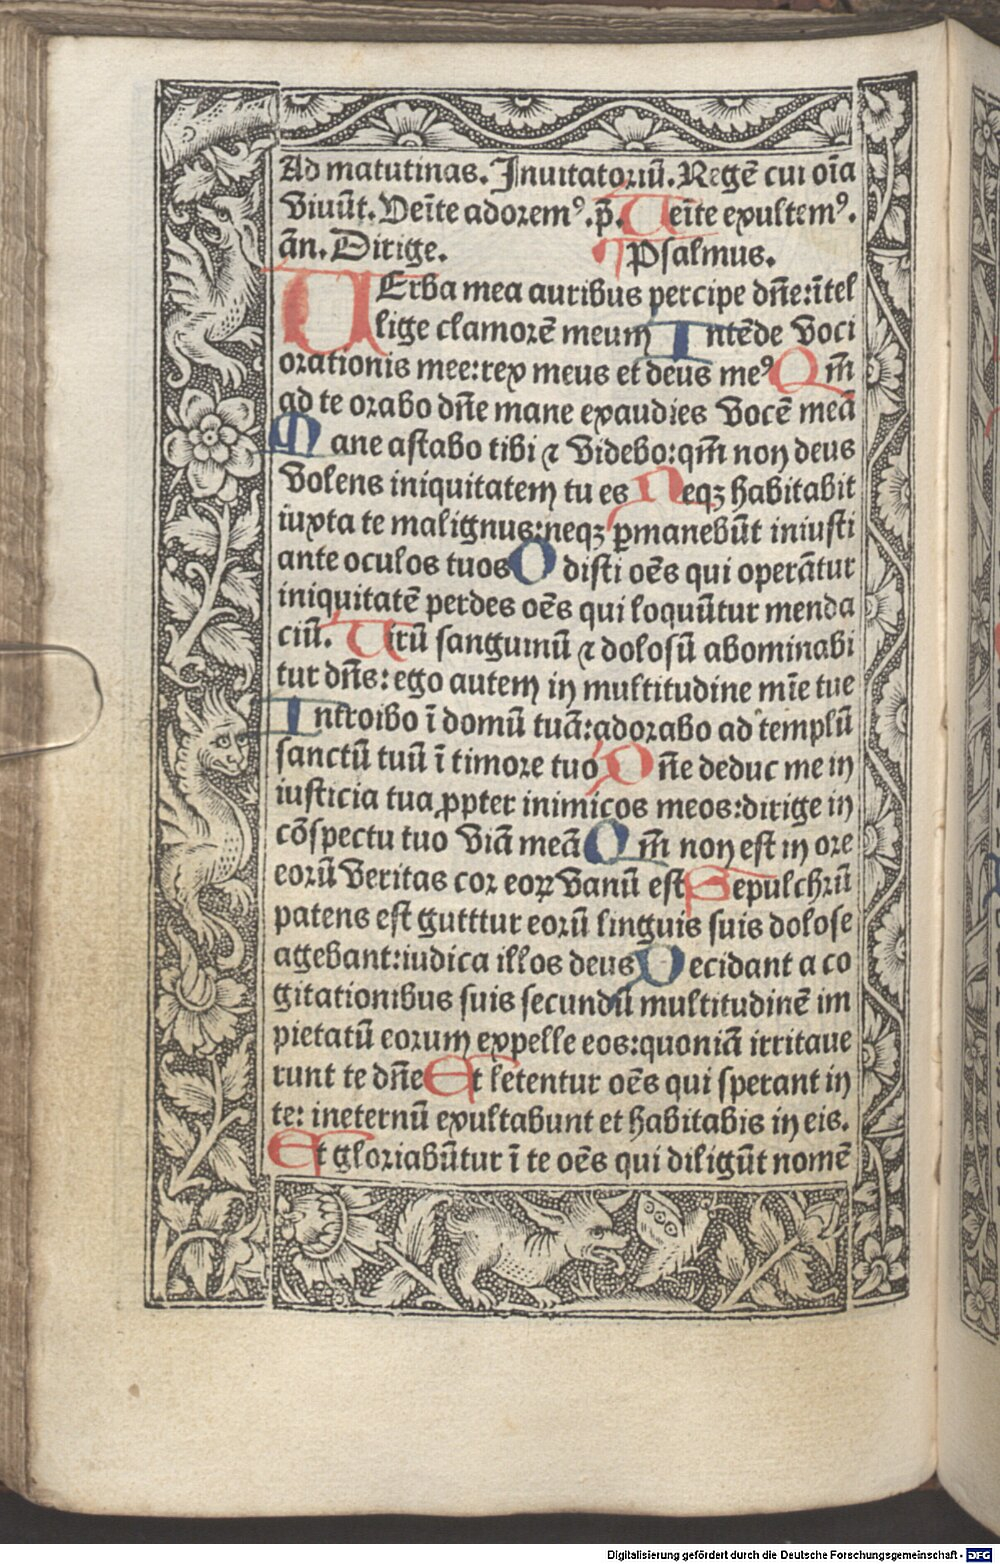 Ad matutinas. Inuitatoriū. Regē cui oīa
viuūt. Veīte adoremꝰ. p̄. Ueīte exultemꝰ.
ān. Dirige. ¶ Psalmus.
UErba mea auribus percipe dn̄e: ītel
lige clamorē meum Intēde voci
orationis mee: rex meus et deus meꝰ Qm̄
ad te orabo dn̄e mane exaudies vocē meā
Mane astabo tibi ⁊ videbo: qm̄ non deus
volens iniquitatem tu es Neqꝫ habitabit
iuxta te malignus: neqꝫ ꝑmanebūt iniusti
ante oculos tuos Odisti oēs qui operātur
iniquitatē perdes oēs qui loquūtur menda
ciū. Uirū sanguinū ⁊ dolosū abominabi
tur dn̄s: ego autem in multitudine mīe tue
Introibo ī domū tuā: adorabo ad templū
sanctū tuū ī timore tuo Dn̄e deduc me in
iusticia tua ꝓpter inimicos meos: dirige in
cōspectu tuo viā meā Qm̄ non est in ore
eorū veritas cor eoꝝ vanū est Sepulchrū
patens est gutttur eorū linguis suis dolose
agebant: iudica illos deus Decidant a co
gitationibus suis secundū multitudinē im
pietatū eorum expelle eos: quoniā irritaue
runt te dn̄e Et letentur oēs qui sperant in
te: ineternū exultabunt et habitabis in eis.
Et gloriabūtur ī te oēs qui diligūt nomē
Digitalisierung gefördert durch die Deutsche Forschungsgemeinschaft - DFG